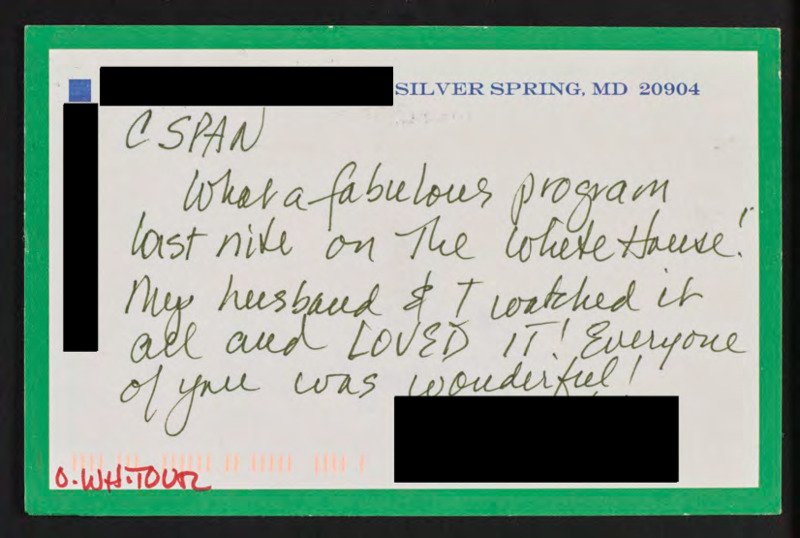 SILVER SPRING, MD 20904
C SPAN
What a fabulous program
last nite on the White House!
My husband & I watched it
all and LOVED IT! Everyone
of you was wonderful!
O. WH. TOUR